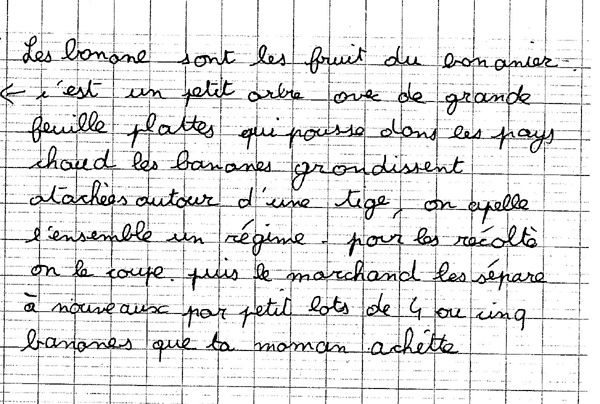 Les banane sont les fruit du bananier.
← c'est un petit arbre avec de grande
feuille plattes qui pousse dans les pays
chaud les bananes grandissent
atachées autour d'une tige, on apelle
l'ensemble un régime. pour les récolté
on le coupe. puis le marchand les sépare
à nouveaux par petit lots de 4 ou cinq
bananes que ta maman achétte